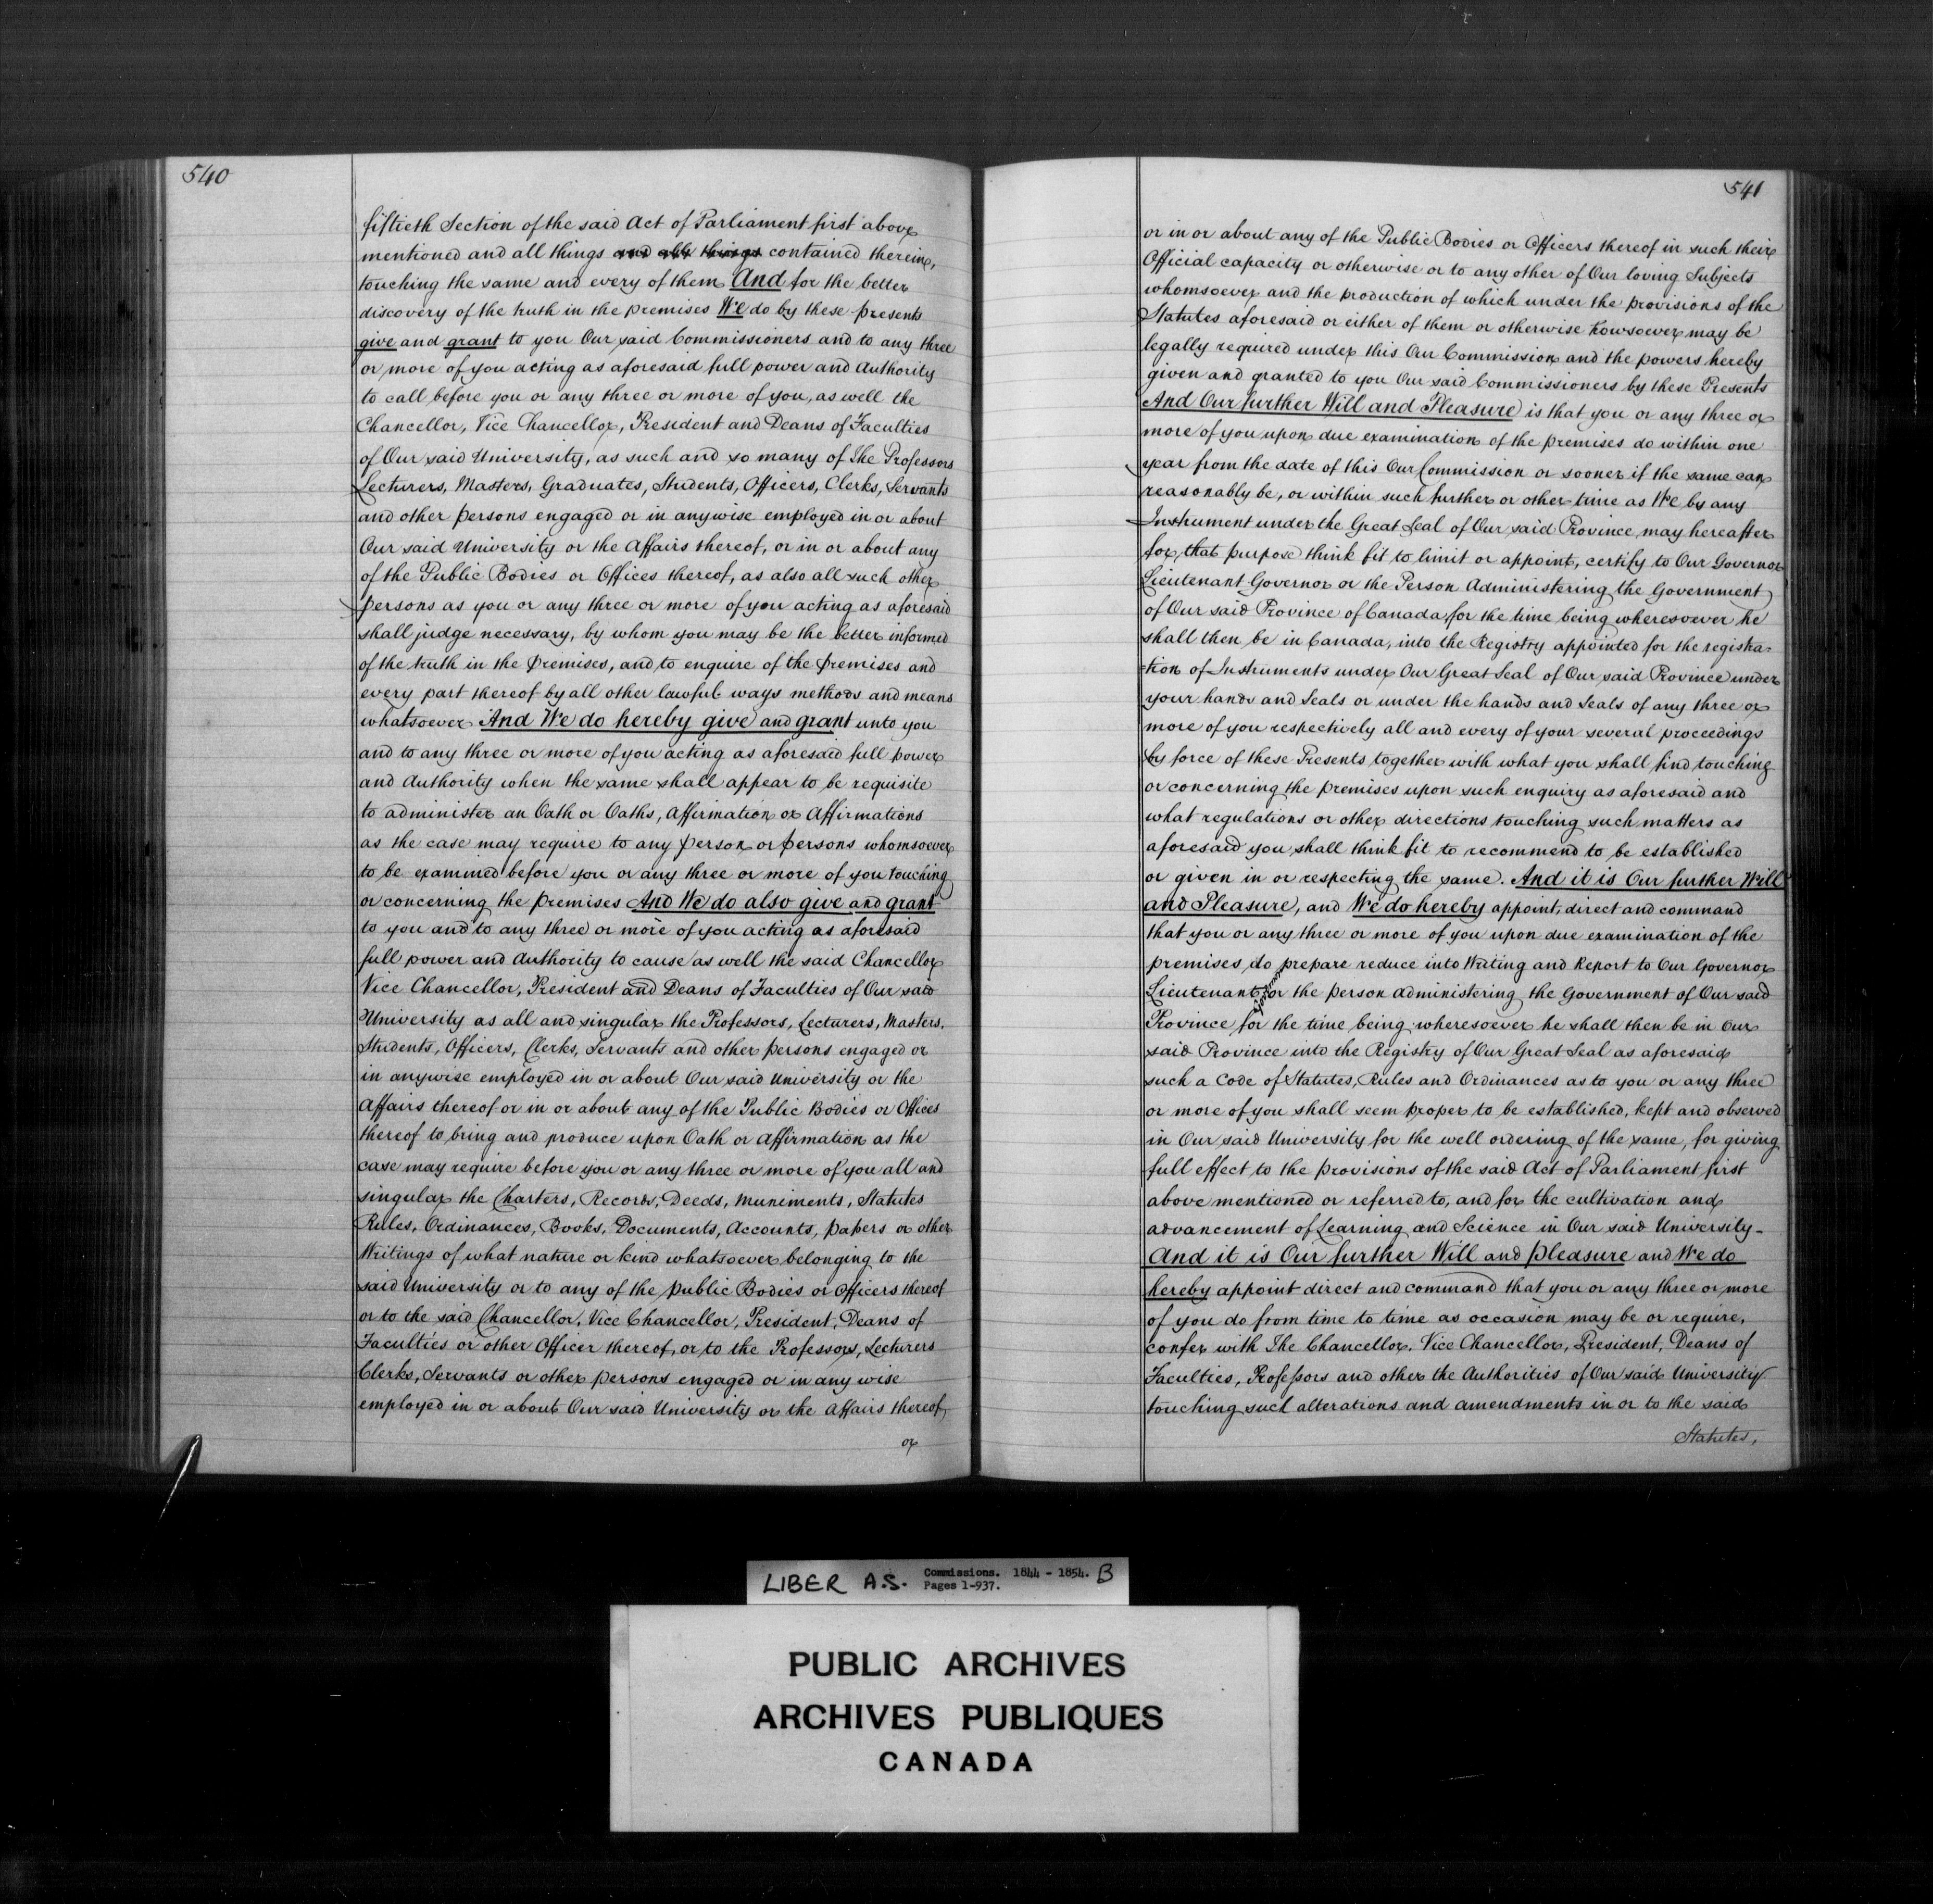 540
fiftieth Section of the said Act of Parliament first above
mentioned and all things and all things contained therein,
touching the same and every of them And for the better
discovery of the truth in the premises We do by these presents
give and grant to you Our said Commissioners and to any three
or more of you acting as aforesaid full power and Authority
to call before you or any three or more of you, as well the
Chancellor, Vice Chancellor, President and Deans of Faculties
of Our said University, as such and so many of the Professors
Lecturers, Masters, Graduates, Students, Officers, Clerks, Servants
and other persons engaged or in anywise employed in or about
Our said University or the Affairs thereof, or in or about any
of the Public Bodies or Offices thereof, as also all such other
persons as you or any three or more of you acting as aforesaid
shall judge necessary, by whom you may be the better informed
of the truth in the premises, and to enquire of the premises and
every part thereof by all other lawful ways methods and means
whatsoever And We do hereby give and grant unto you
and to any three or more of you acting as aforesaid full power
and Authority when the same shall appear to be requisite
to administer an Oath or Oaths, Affirmation or Affirmations
as the case may require to any person or persons whomsoever
to be examined before you or any three or more of you touching
or concerning the premises And We do also give and grant
to you and to any three or more of you acting as aforesaid
full power and Authority to cause as well the said Chancellor
Vice Chancellor, President and Deans of Faculties of Our said
University as all and singular the Professors, Lecturers, Masters,
Students, Officers, Clerks, Servants and other persons engaged or
in anywise employed in or about Our said University or the
Affairs thereof or in or about any of the Public Bodies or Offices
thereof to bring and produce upon Oath or Affirmation as the
case may require before you or any three or more of you all and
singular the Charters, Records, Deeds, Muniments, Statutes
Rules, Ordinances, Books, Documents, Accounts, papers or other
Writings of what nature or kind whatsoever belonging to the
said University or to any of the Public Bodies or Officers thereof
or to the said Chancellor, Vice Chancellor, President, Deans of
Faculties or other Officer thereof, or to the Professors, Lecturers
Clerks, Servants or other persons engaged or in any wise
employed in or about Our said University or the Affairs thereof,
or
541
or in or about any of the Public Bodies or Officers thereof in such their
Official capacity or otherwise or to any other of Our loving Subjects
whomsoever and the production of which under the provisions of the
Statutes aforesaid or either of them or otherwise howsoever may be
legally required under this Our Commission and the powers hereby
given and granted to you Our said Commissioners by these Presents
And Our further Will and Pleasure is that you or any three or
more of you upon due examination of the premises do within one
year from the date of this Our Commission or sooner if the same can
reasonably be, or within such further or other time as We by any
Instrument under the Great Seal of Our said Province may hereafter
for that purpose think fit to limit or appoint, certify to Our Governor
Lieutenant Governor or the Person Administering the Government
of Our said Province of Canada for the time being wheresoever he
shall then be in Canada, into the Registry appointed for the registra-
tion of Instruments under Our Great Seal of Our said Province under
your hands and Seals or under the hands and Seals of any three or
more of you respectively all and every of your several proceedings
by force of these Presents together with what you shall find touching
or concerning the premises upon such enquiry as aforesaid and
what regulations or other directions touching such matters as
aforesaid you shall think fit to recommend to be established
or given in or respecting the same. And it is Our further Will
and Pleasure, and We do hereby appoint, direct and command
that you or any three or more of you upon due examination of the
premises, do prepare reduce into Writing and Report to Our Governor
Lieutenant Governor or the person administering the Government of Our said
Province for the time being wheresoever he shall then be in Our
said Province into the Registry of Our Great Seal as aforesaid
such a Code of Statutes, Rules and Ordinances as to you or any three
or more of you shall seem proper to be established, kept and observed
in Our said University for the well ordering of the same, for giving
full effect to the provisions of the said Act of Parliament first
above mentioned or referred to, and for the cultivation and
advancement of Learning and Science in Our said University-
And it is Our further Will and pleasure and We do
hereby appoint direct and command that you or any three or more
of you do from time to time as occasion may be or require,
confer with The Chancellor, Vice Chancellor, President, Deans of
Faculties, Professors and other the Authorities of Our said University
touching such alterations and amendments in or to the said
Statutes,
LIBER A.S. Commissions. 1844 - 1854. B
Pages 1-937.
PUBLIC ARCHIVES
ARCHIVES PUBLIQUES
CANADA